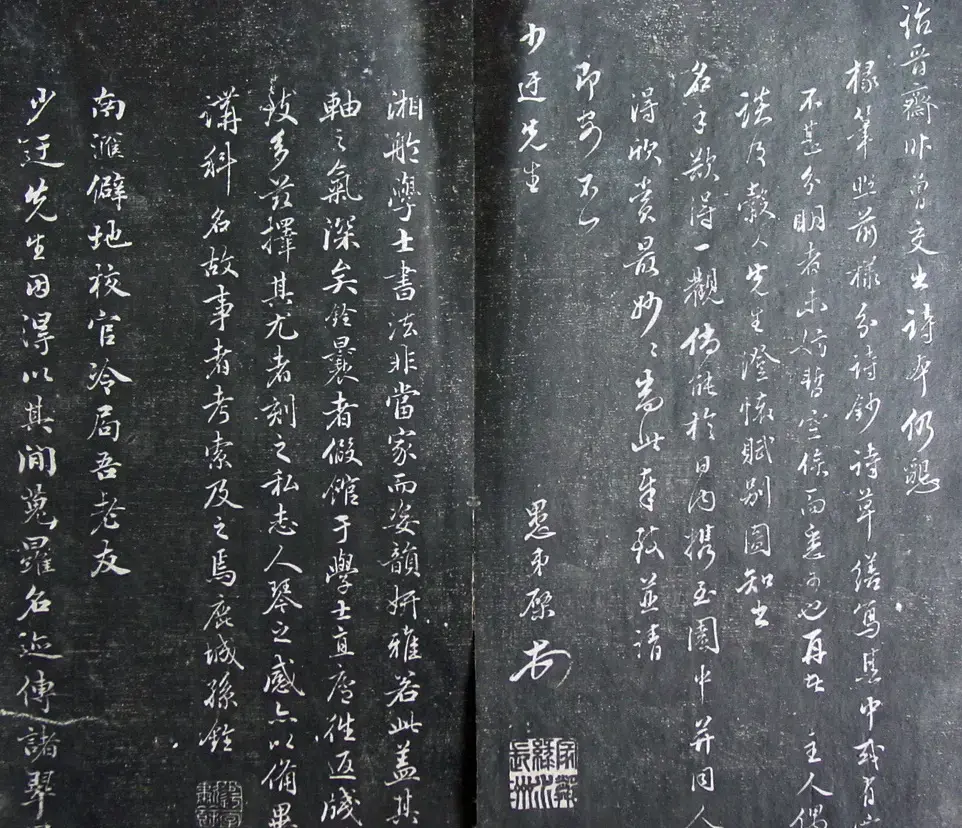 詒晉齋昨曾交出詩本仍懇
椽筆照前樣分詩鈔詩草繕寫其中或有
不甚分明者未妨暫空俟面悉可也再者 主人偶
談及穀人先生澄懷賦別圖知出
名手欲得一觀倘能於日內攜至園中并同人
得欣賞最妙〻耑此奉致並請
即安不一
少迂先生
愚弟 頓首
湘舲學士書法非當家而姿韻妍雅若此蓋其
軸之氣深矣銓曩者假館于學士直廬往返牋
致多茲擇其尤者刻之私志人琴之感亦以備異
講科名故事者考索及之焉鹿城孫銓
南滙僻地校官冷局吾老友
少迂先生因得以其間蒐羅名迹傳諸翠